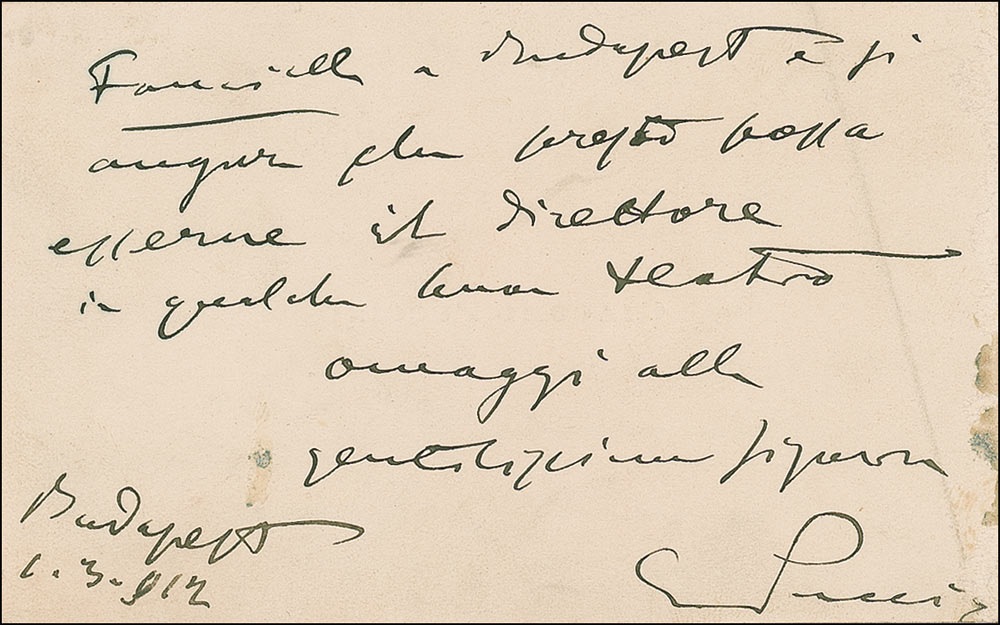 Fanciulla a Budapest e si
augura che presto possa
esserne il direttore
in qualche buon teatro
omaggi alla
gentilissima signora
Budapest
1.3.912
G Puccini